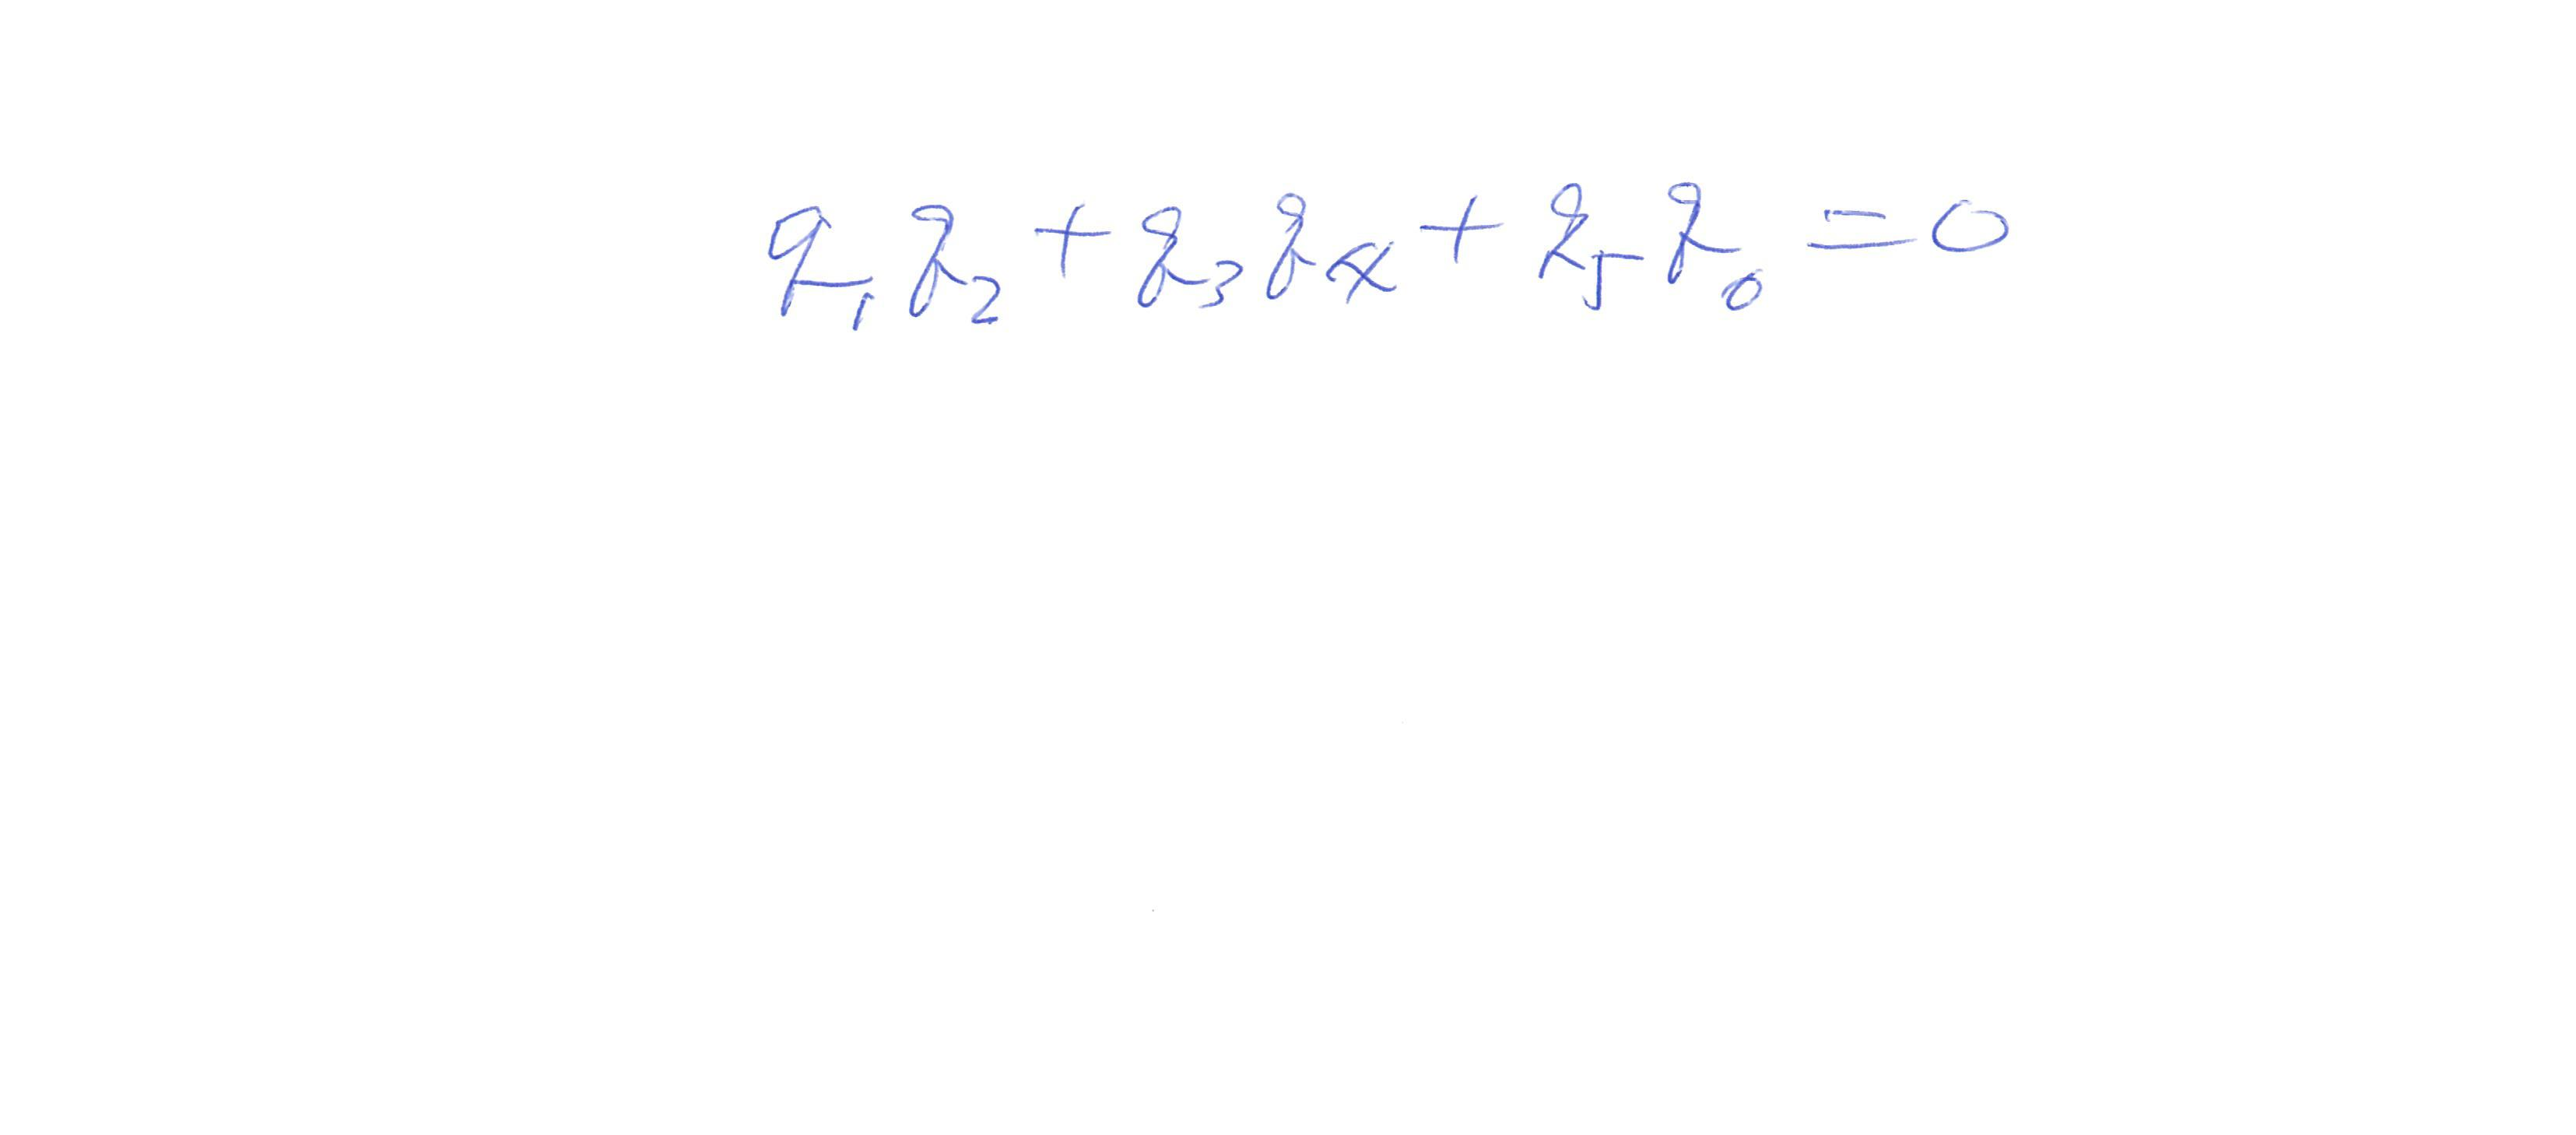 q₁q₂ + q₃q₄ + q₅q₀ = 0